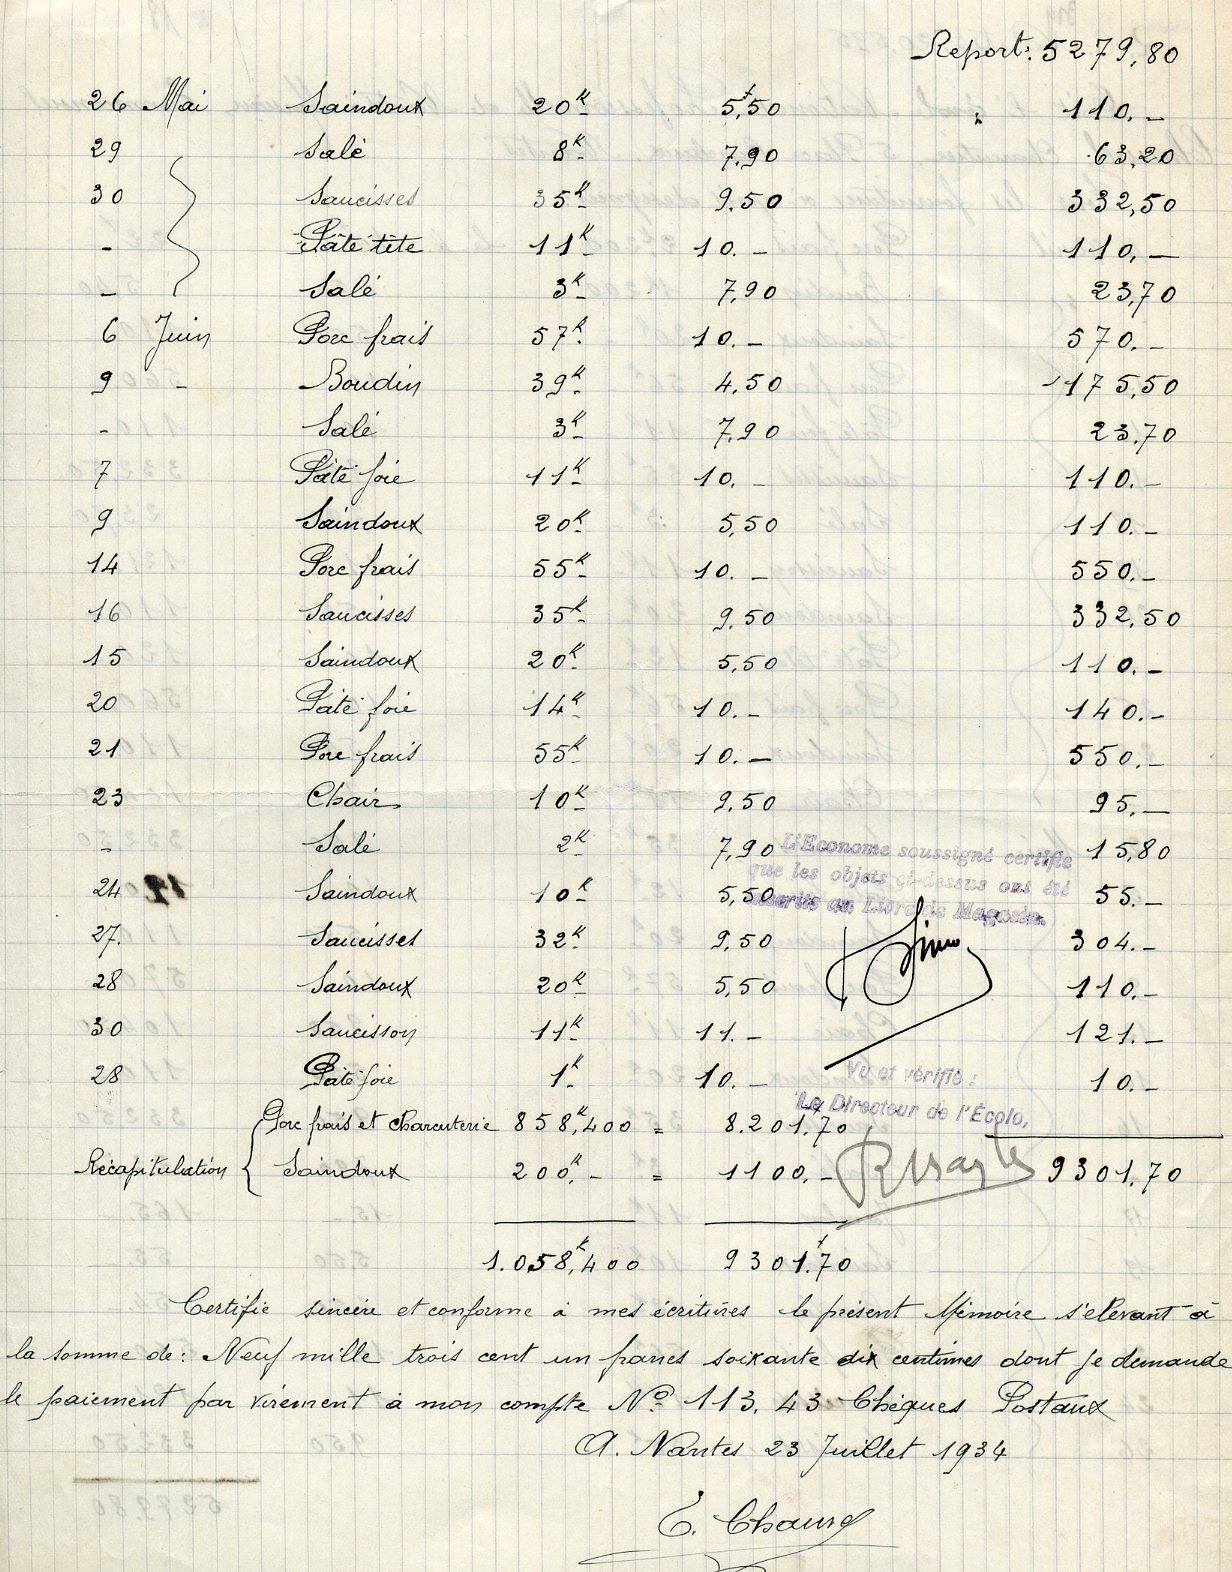 Report: 5279,80
26 Mai Saindoux 20K 5,50 110.-
29 Salé 8K 7,90 63,20
30 Saucisses 35K 9,50 332,50
- Pâté tête 11K 10.- 110,-
- Salé 3K 7,90 23,70
6 Juin Porc frais 57K 10.- 570.-
9 - Boudin 39K 4,50 175,50
- Salé 3K 7,90 23,70
7 Pâté foie 11K 10.- 110.-
9 Saindoux 20K 5,50 110.-
14 Porc frais 55K 10.- 550.-
16 Saucisses 35K 9,50 332,50
15 Saindoux 20K 5,50 110.-
20 Pâté foie 14K 10.- 140.-
21 Porc frais 55K 10.- 550.-
23 Chair 10K 9,50 95.-
- Salé 2K 7,90 15,80
L'Econome soussigné certifie
que les objets ci-dessus ont été
inscrits au Livre de Magasin
24 Saindoux 10K 5,50 55.-
27. Saucisses 32K 9,50 304.-
28 Saindoux 20K 5,50 110.-
30 Saucisson 11K 11.- 121.-
28 Pâté foie 1K 10.- 10.-
Vu et vérifié :
Le Directeur de l'École,
Récapitulation { Porc frais et charcuterie 858K,400 = 8.201,70
Saindoux 200K,- = 1100,- 9301,70
1.058K,400 9301,70
Certifié sincère et conforme à mes écritures le présent Mémoire s'élevant à
la somme de: Neuf mille trois cent un francs soixante dix centimes dont je demande
le paiement par virement à mon compte No 113.43 Chèques Postaux
A. Nantes 23 Juillet 1934